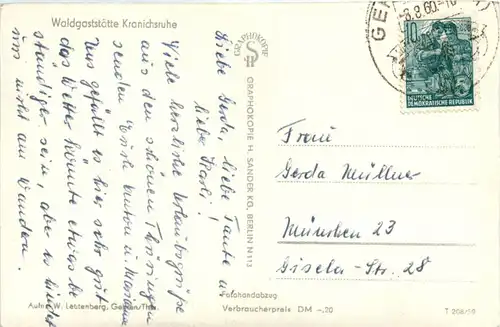 Waldgaststätte Kranichsruhe
Liebe Gerda, liebe Tante u.
liebe Kasli!
Viele herzliche Urlaubsgrüße
aus den schönen Thüringen
senden Euch Anton u.
Uns gefällt es hier sehr gut
das Wetter könnte etwas be
ständiger sein, aber es hindert
uns nicht am Wandern.
Aufn. W. Lettenberg, Gehren/Thür.
GRAPHOKOPIE
GRAPHOKOPIE H. SANDER KG, BERLIN N 113
GEH
-8.8.60-10
10
DEUTSCHE
DEMOKRATISCHE REPUBLIK
Frau
Gerda Müllner
München 23
Gisela-Str. 28
Fotohandabzug
Verbraucherpreis DM -,20
T 208/59